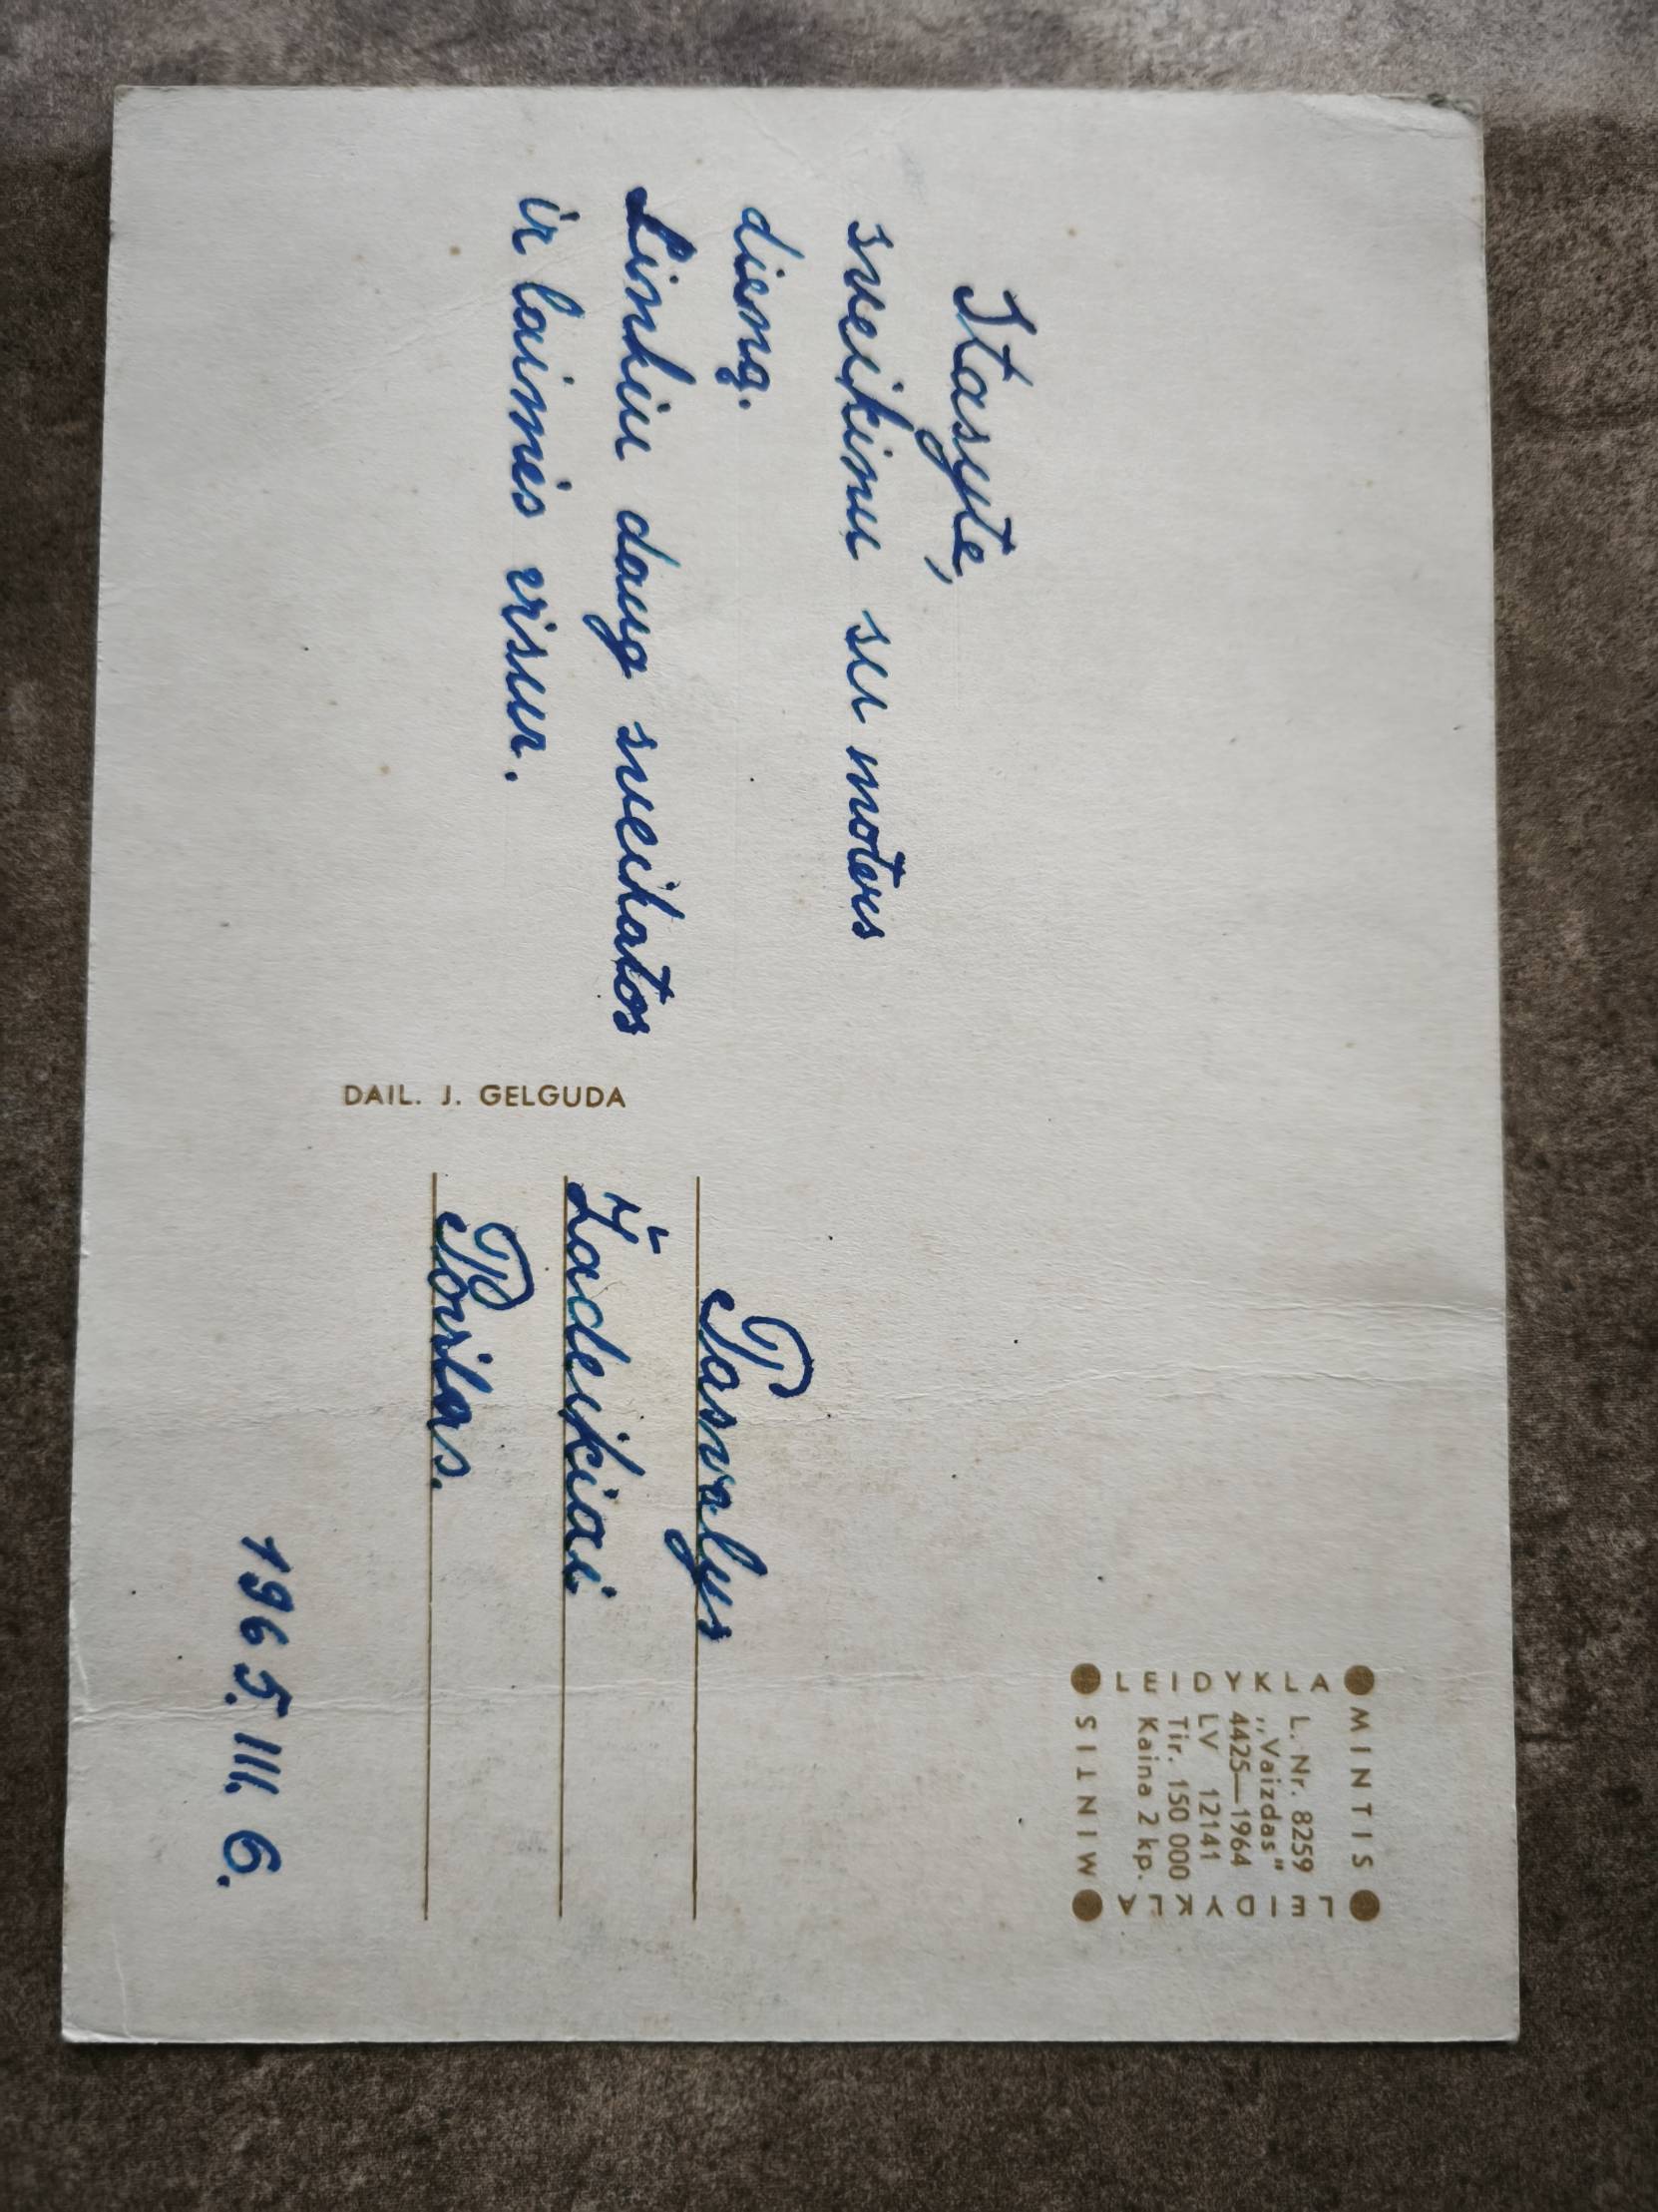 Stasyte,
sveikinu su moters
dieną.
Linkiu daug sveikatos
ir laimės visur.
DAIL. J. GELGUDA
Pasvalys
Žadeikiai
Povilas.
1965. III. 6.
MINTIS
LEIDYKLA
MINTIS
LEIDYKLA
L. Nr. 8259
„Vaizdas"
4425—1964
LV 12141
Tir. 150 000
Kaina 2 kp.